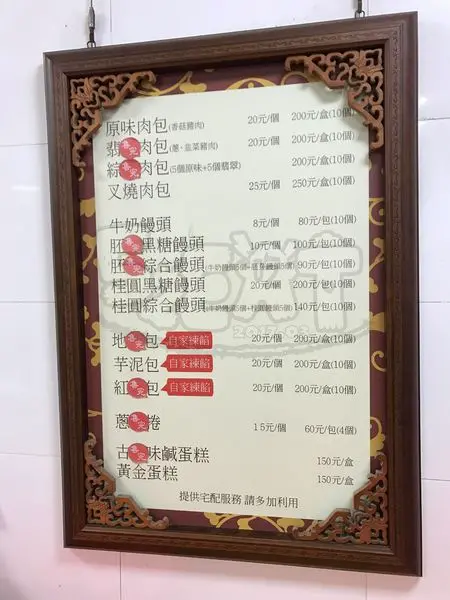 原味肉包(香菇豬肉) 20元/個 200元/盒(10個)
翡售完肉包(蔥、韭菜豬肉) 20元/個 200元/盒(10個)
綜售完肉包(5個原味+5個翡翠) 200元/盒(10個)
叉燒肉包 25元/個 250元/盒(10個)
牛奶饅頭 8元/個 80元/包(10個)
胚售完黑糖饅頭 10元/個 100元/包(10個)
胚售完綜合饅頭(牛奶饅頭5個+胚芽饅頭5個) 90元/包(10個)
桂圓黑糖饅頭 20元/個 200元/包(10個)
桂圓綜合饅頭(牛奶饅頭5個+桂圓饅頭5個) 140元/包(10個)
地售完包 自家揀餡 20元/個 200元/盒(10個)
芋泥包 自家揀餡 20元/個 200元/盒(10個)
紅售完包 自家揀餡 20元/個 200元/盒(10個)
蔥售完捲 15元/個 60元/包(4個)
古售完味鹹蛋糕 150元/盒
黃金蛋糕 150元/盒
提供宅配服務 請多加利用
2017.03